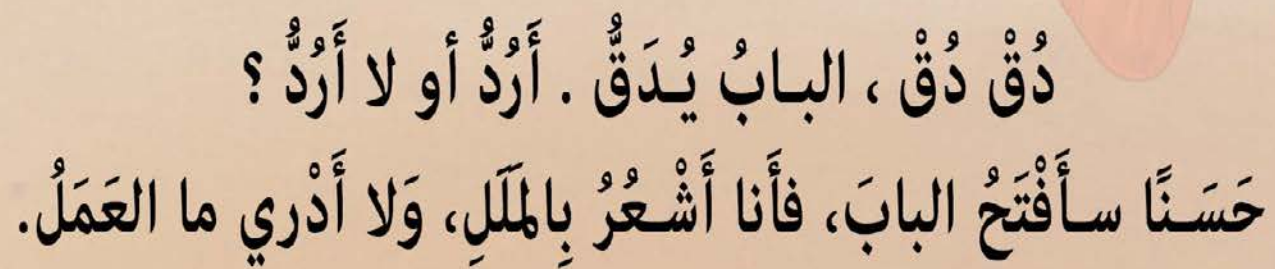 دُقْ دُقْ ، البـابُ يُـدَقُّ . أَرُدُّ أو لا أَرُدُّ ؟
حَسَـنًا سـأَفْتَحُ البابَ، فأَنا أَشْـعُرُ بِالمَلَلِ، وَلا أَدْري ما العَمَلُ.